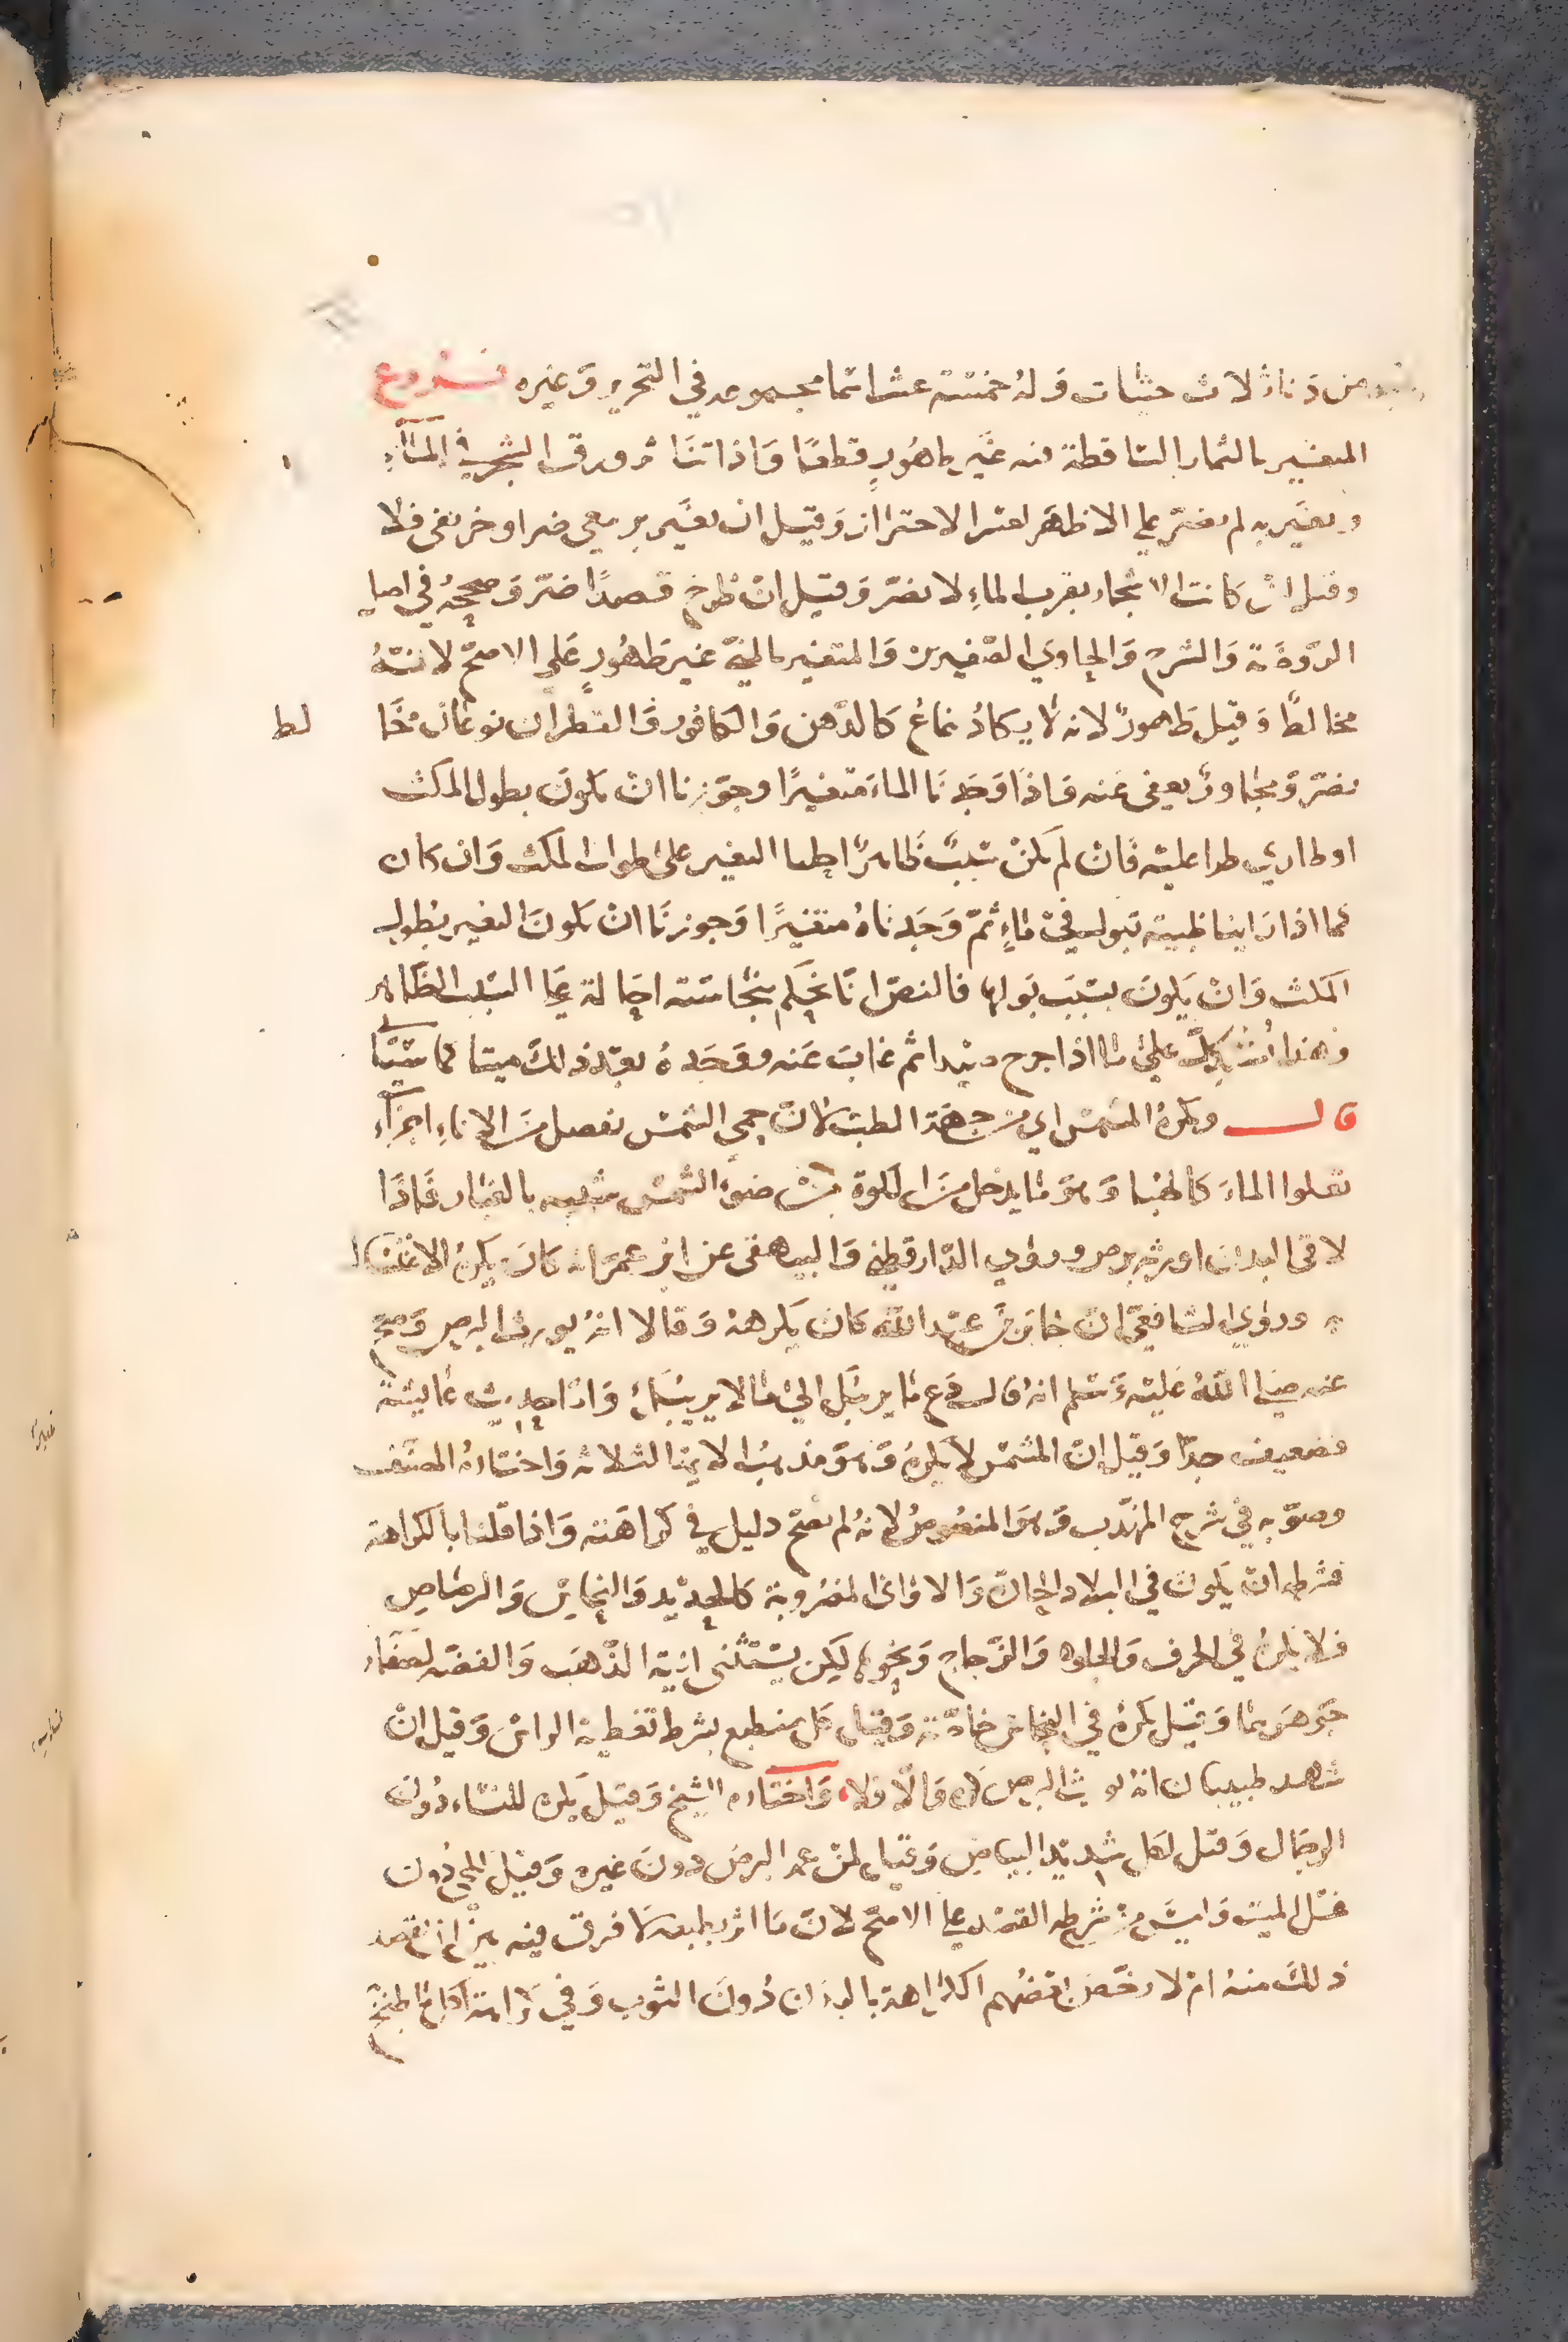 من دناثلاث حثيات وله خمسة عشر اسما مجموعه في التحرير وغيره فروع
المتغير بالثمار الساقطة فيه غير طهورٍ قطعًا واذا تناثر ورق الشجر في المآءِ
وتغير به لم يضر على الاظهر لعسر الاحتراز وقيل ان تغير بربيعي ضر او خريفي فلا
وقيل ان كانت الاشجار بقرب الماءِ لا يضر وقيل ان طُرح قصدًا ضر وصححهُ في اصل
الروضة والشرح والحاوي الصغيرين والمتغير بالمني غير طهورٍ على الاصح لانهُ
مخالطٌ وقيل طهورٌ لانه لا يكادُ ينماعُ كالدهن والكافور والقطران نوعان مخا لط
يضر ومجاورٌ يعفى عنه فاذا وجدنا الماءَ متغيرًا وجوزنا ان يكون بطول المكث
او طاري طرا عليه فان لم يكن سببٌ ظاهرٌ احلنا التغير على طول المكث وان كان
كما اذا راينا ظبية تبول في ماءٍ ثم وجدناهُ متغيرًا وجوزنا ان يكون التغير بطول
المكث وان يكون بسبب بولها فالنص انا نحكم بنجاسته احالة على السبب الظاهر
وهذا يُشكل على ما اذا جرح صيدا ثم غاب عنه فوجدهُ بعد ذلك ميتا كما سياتي
قال ويكرهُ المشمس اي من جهة الطب لان حمي الشمس يفصل من الاناءِ اجزآء
تعلوا الماءَ كالهبا وهو ما يدخل من الكوة من ضوء الشمس شبيه بالغبار فاذا
لاقى البدن اورثه برص وروي الدارقطني والبيهقي عن ابن عمر انه كان يكره الاغتسال
به وروي الشافعي ان جابر بن عبد الله كان يكرهه وقالا انهُ يورث البرص وصح
عنه صلى اللهُ عليه وسلم انهُ قال دع ما يريبك الى ما لا يريبك واما حديث عايشة
فضعيف جدا وقيل ان المشمس لا يكرهُ وهو مذهب الايمة الثلاثه واختارهُ المصنف
وصوبه في شرح المهذب وهو المنصوص لانهُ لم يصح دليل في كراهته واذا قلنا بالكراهة
فشرطه ان يكون في البلاد الحارة والاواني المضروبة كالحديد والنحاس والرصاص
فلا يكره في الخزف والجلود والزجاج ونحوها لكن يستثنى انية الذهب والفضة لصفاء
جوهرهما وقيل يكرهُ في النحاس خاصة وقيل كل منطبع بشرط تغطية الراس وقيل ان
شهد طبيبان انه يورث البرص كره والا فلا واختاره الشيخ وقيل يكره للنساء دُون
الرجال وقيل لكل شديد البياض وقيل لمن عمه البرص دون غيره وقيل للحي دُون
غسل الميت وليس من شرطه القصد على الاصح لان ما اثر بطبعه لا فرق فيه بين ان يقصد
ذلك منهُ ام لا وخص بعضهم الكراهة بالبدن دُون الثوب وفي كراهة اكل ما طبخ